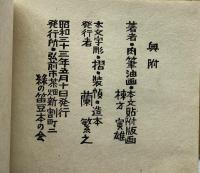 奥附
著者・肉筆油画・本文貼附版画
棟方寅雄
本文字彫・摺・装幀・造本
発行者 蘭繁之
昭和三十三年五月十日発行
発行所・弘前市茶畑新割町二
緑の笛豆本の会